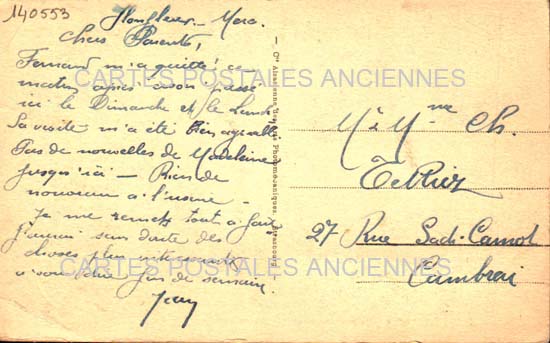 140553
Honfleur - Merc.
Chers Parents,
Fernand m'a quitté ce
matin après avoir passé
ici le Dimanche et le Lundi
Sa visite m'a été bien agréable
Pas de nouvelles de Madeleine
jusqu'ici - Rien de
nouveau à l'usine -
Je me remets tout à fait
J'aurai sans doute des
choses plus intéressantes
à vous dire fin de semaine
Jean
Cie Alsacienne des Arts Photomécaniques, Strasbourg
Mr & Mme Ch.
27 Rue Sadi-Carnot
Cambrai
CARTES POSTALES ANCIENNES
CARTES POSTALES ANCIENNES